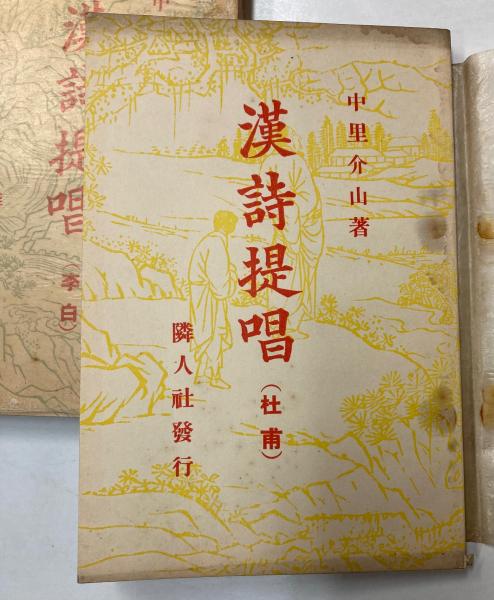 中里介山著
漢詩提唱
（杜甫）
隣人社發行
漢詩提唱
（李白）